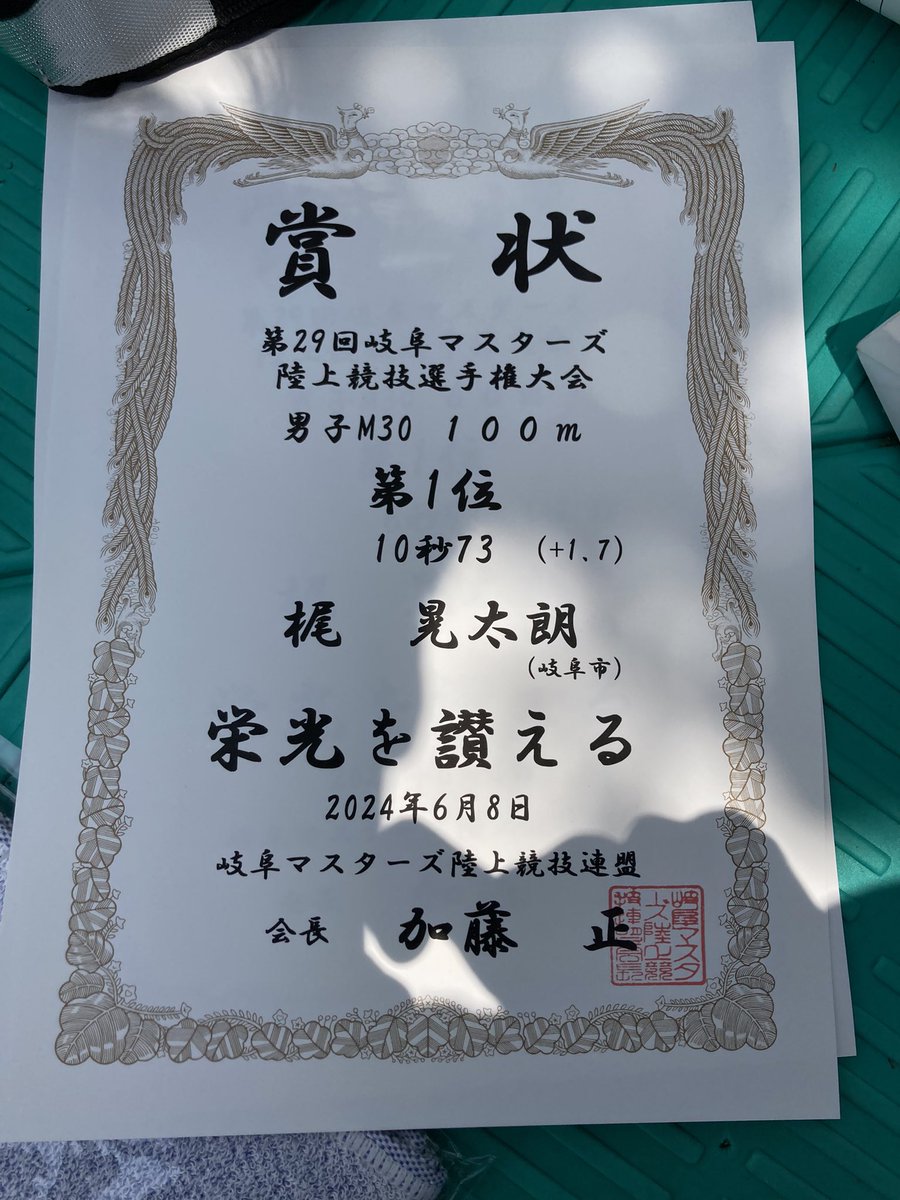 賞状
第29回岐阜マスターズ
陸上競技選手権大会
男子M30 １００ｍ
第1位
10秒73 (+1.7)
梶 晃太朗
(岐阜市)
栄光を讃える
2024年6月8日
岐阜マスターズ陸上競技連盟
会長 加藤 正